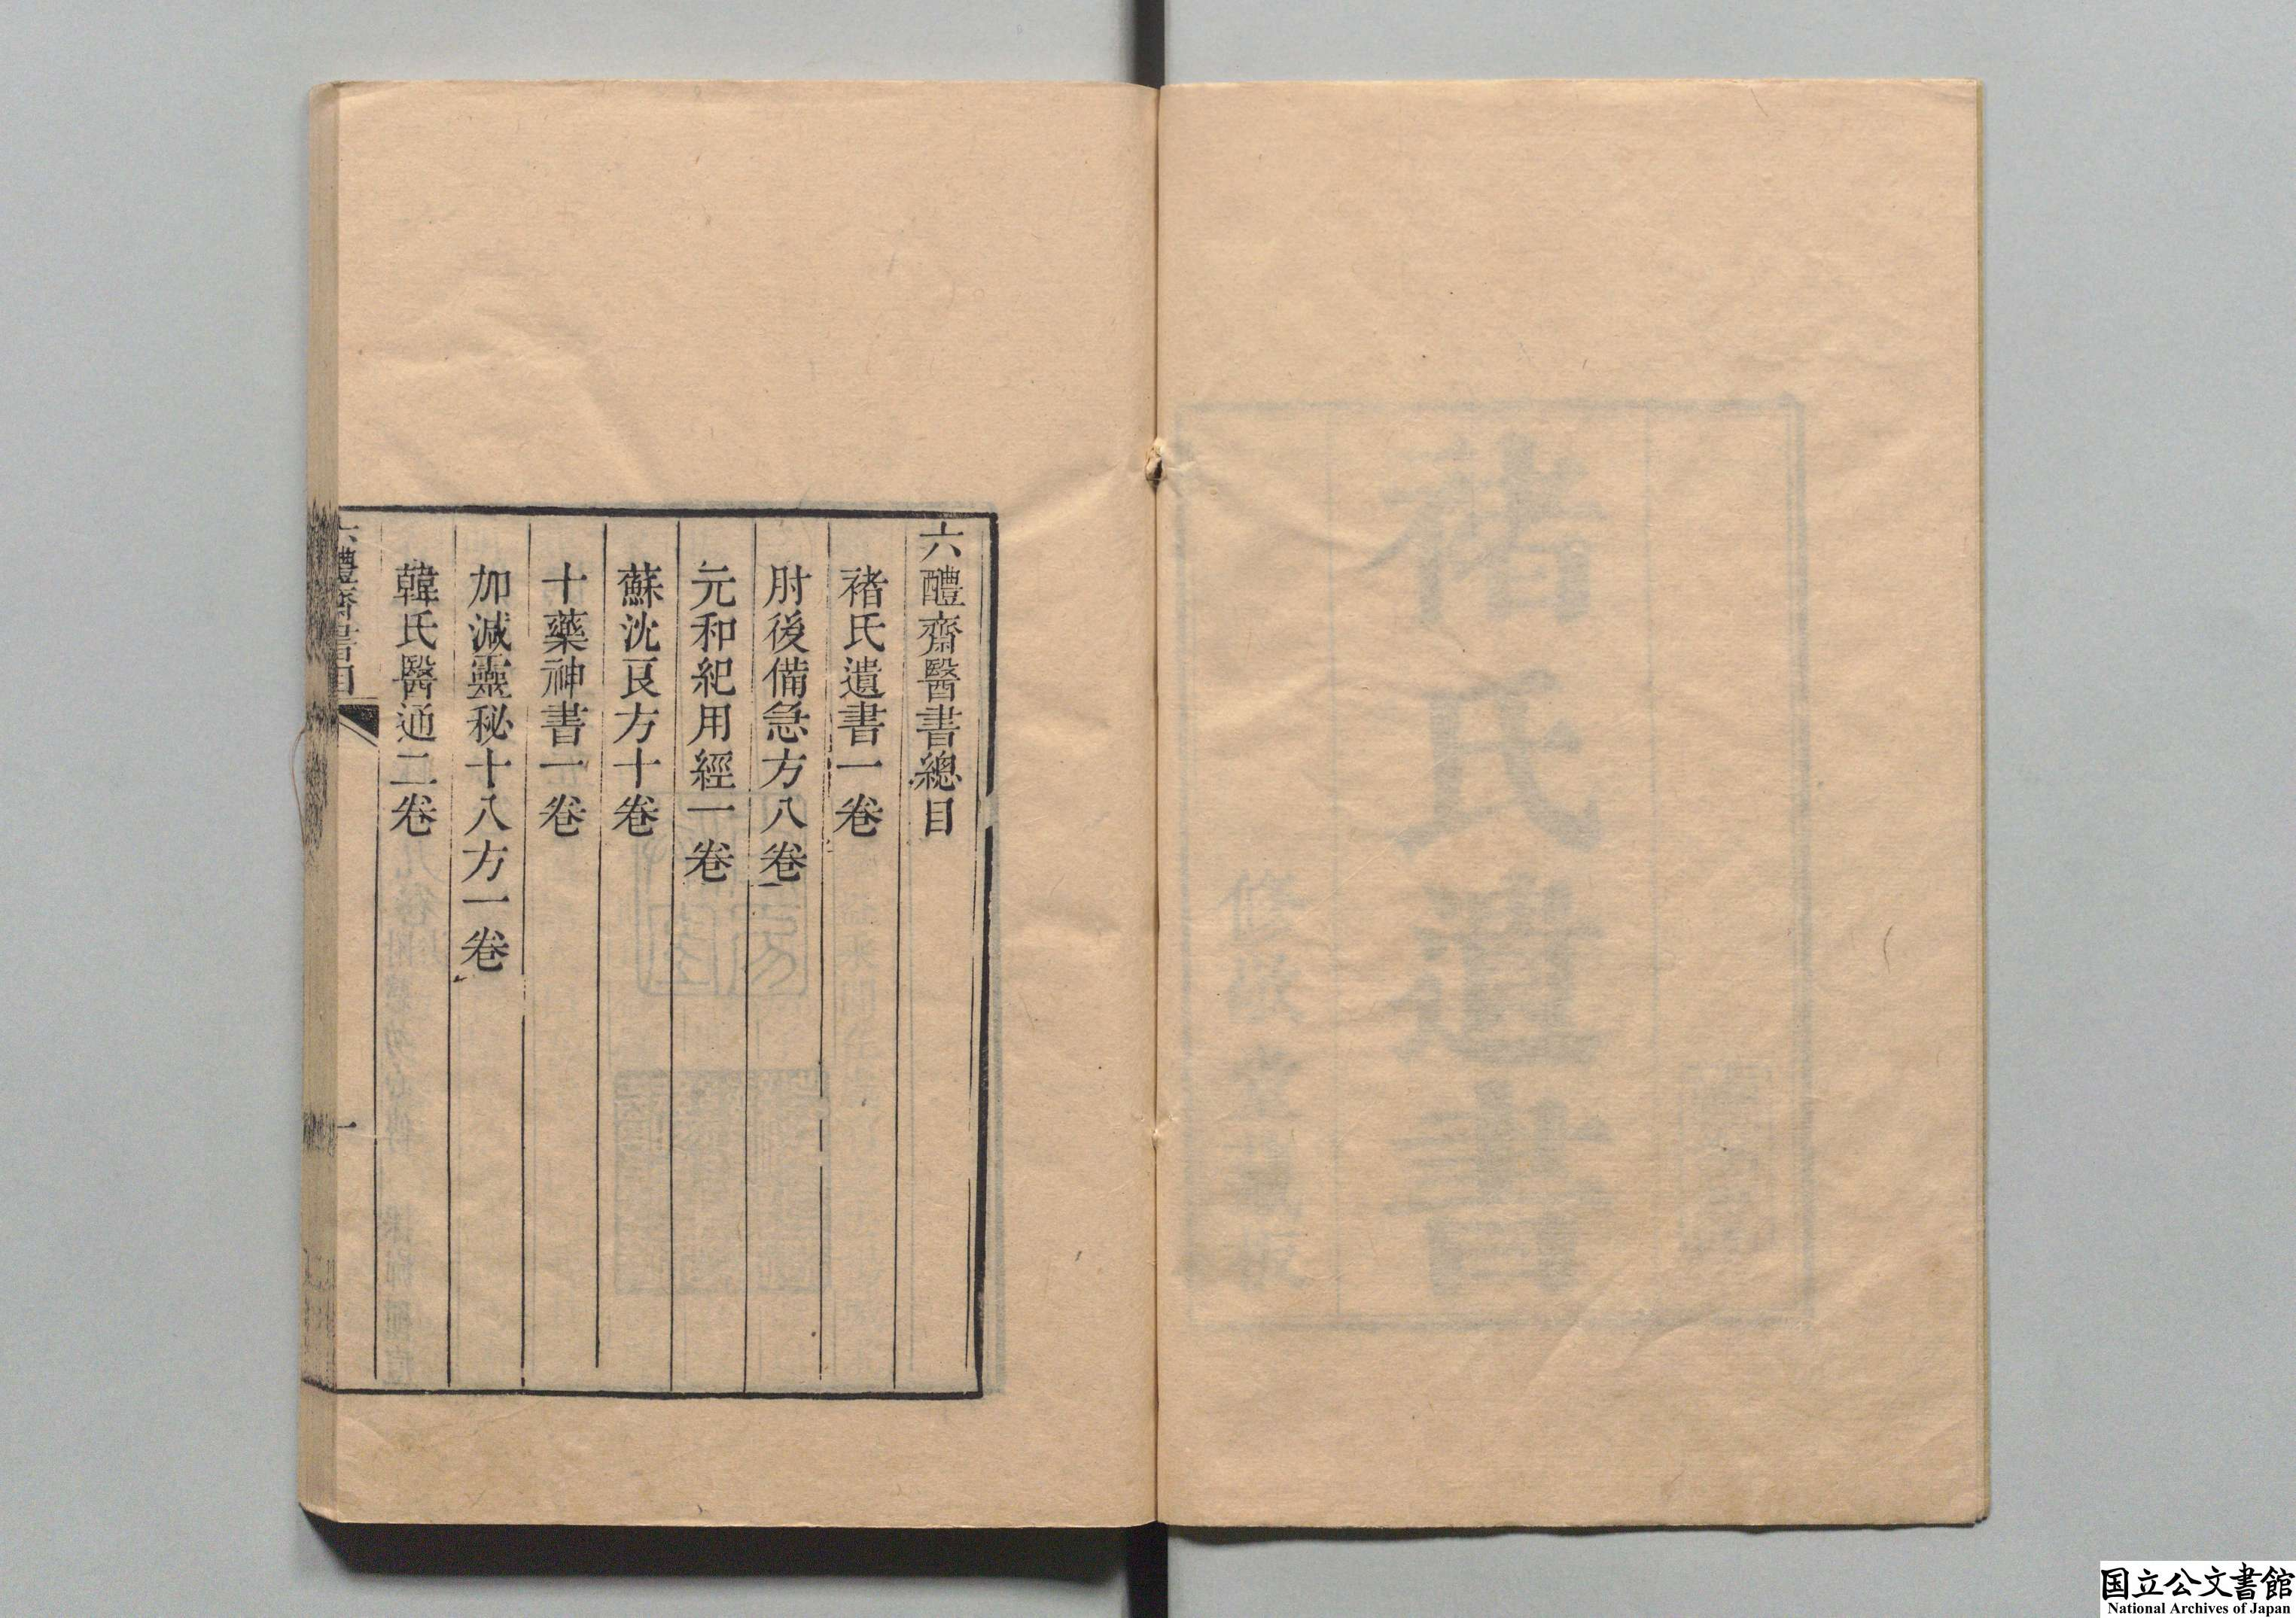 六醴齋醫書總目
褚氏遺書一卷
肘後備急方八卷
元和紀用經一卷
蘇沈良方十卷
十藥神書一卷
加減靈秘十八方一卷
韓氏醫通二卷
六醴齋書目
一
国立公文書館
National Archives of Japan